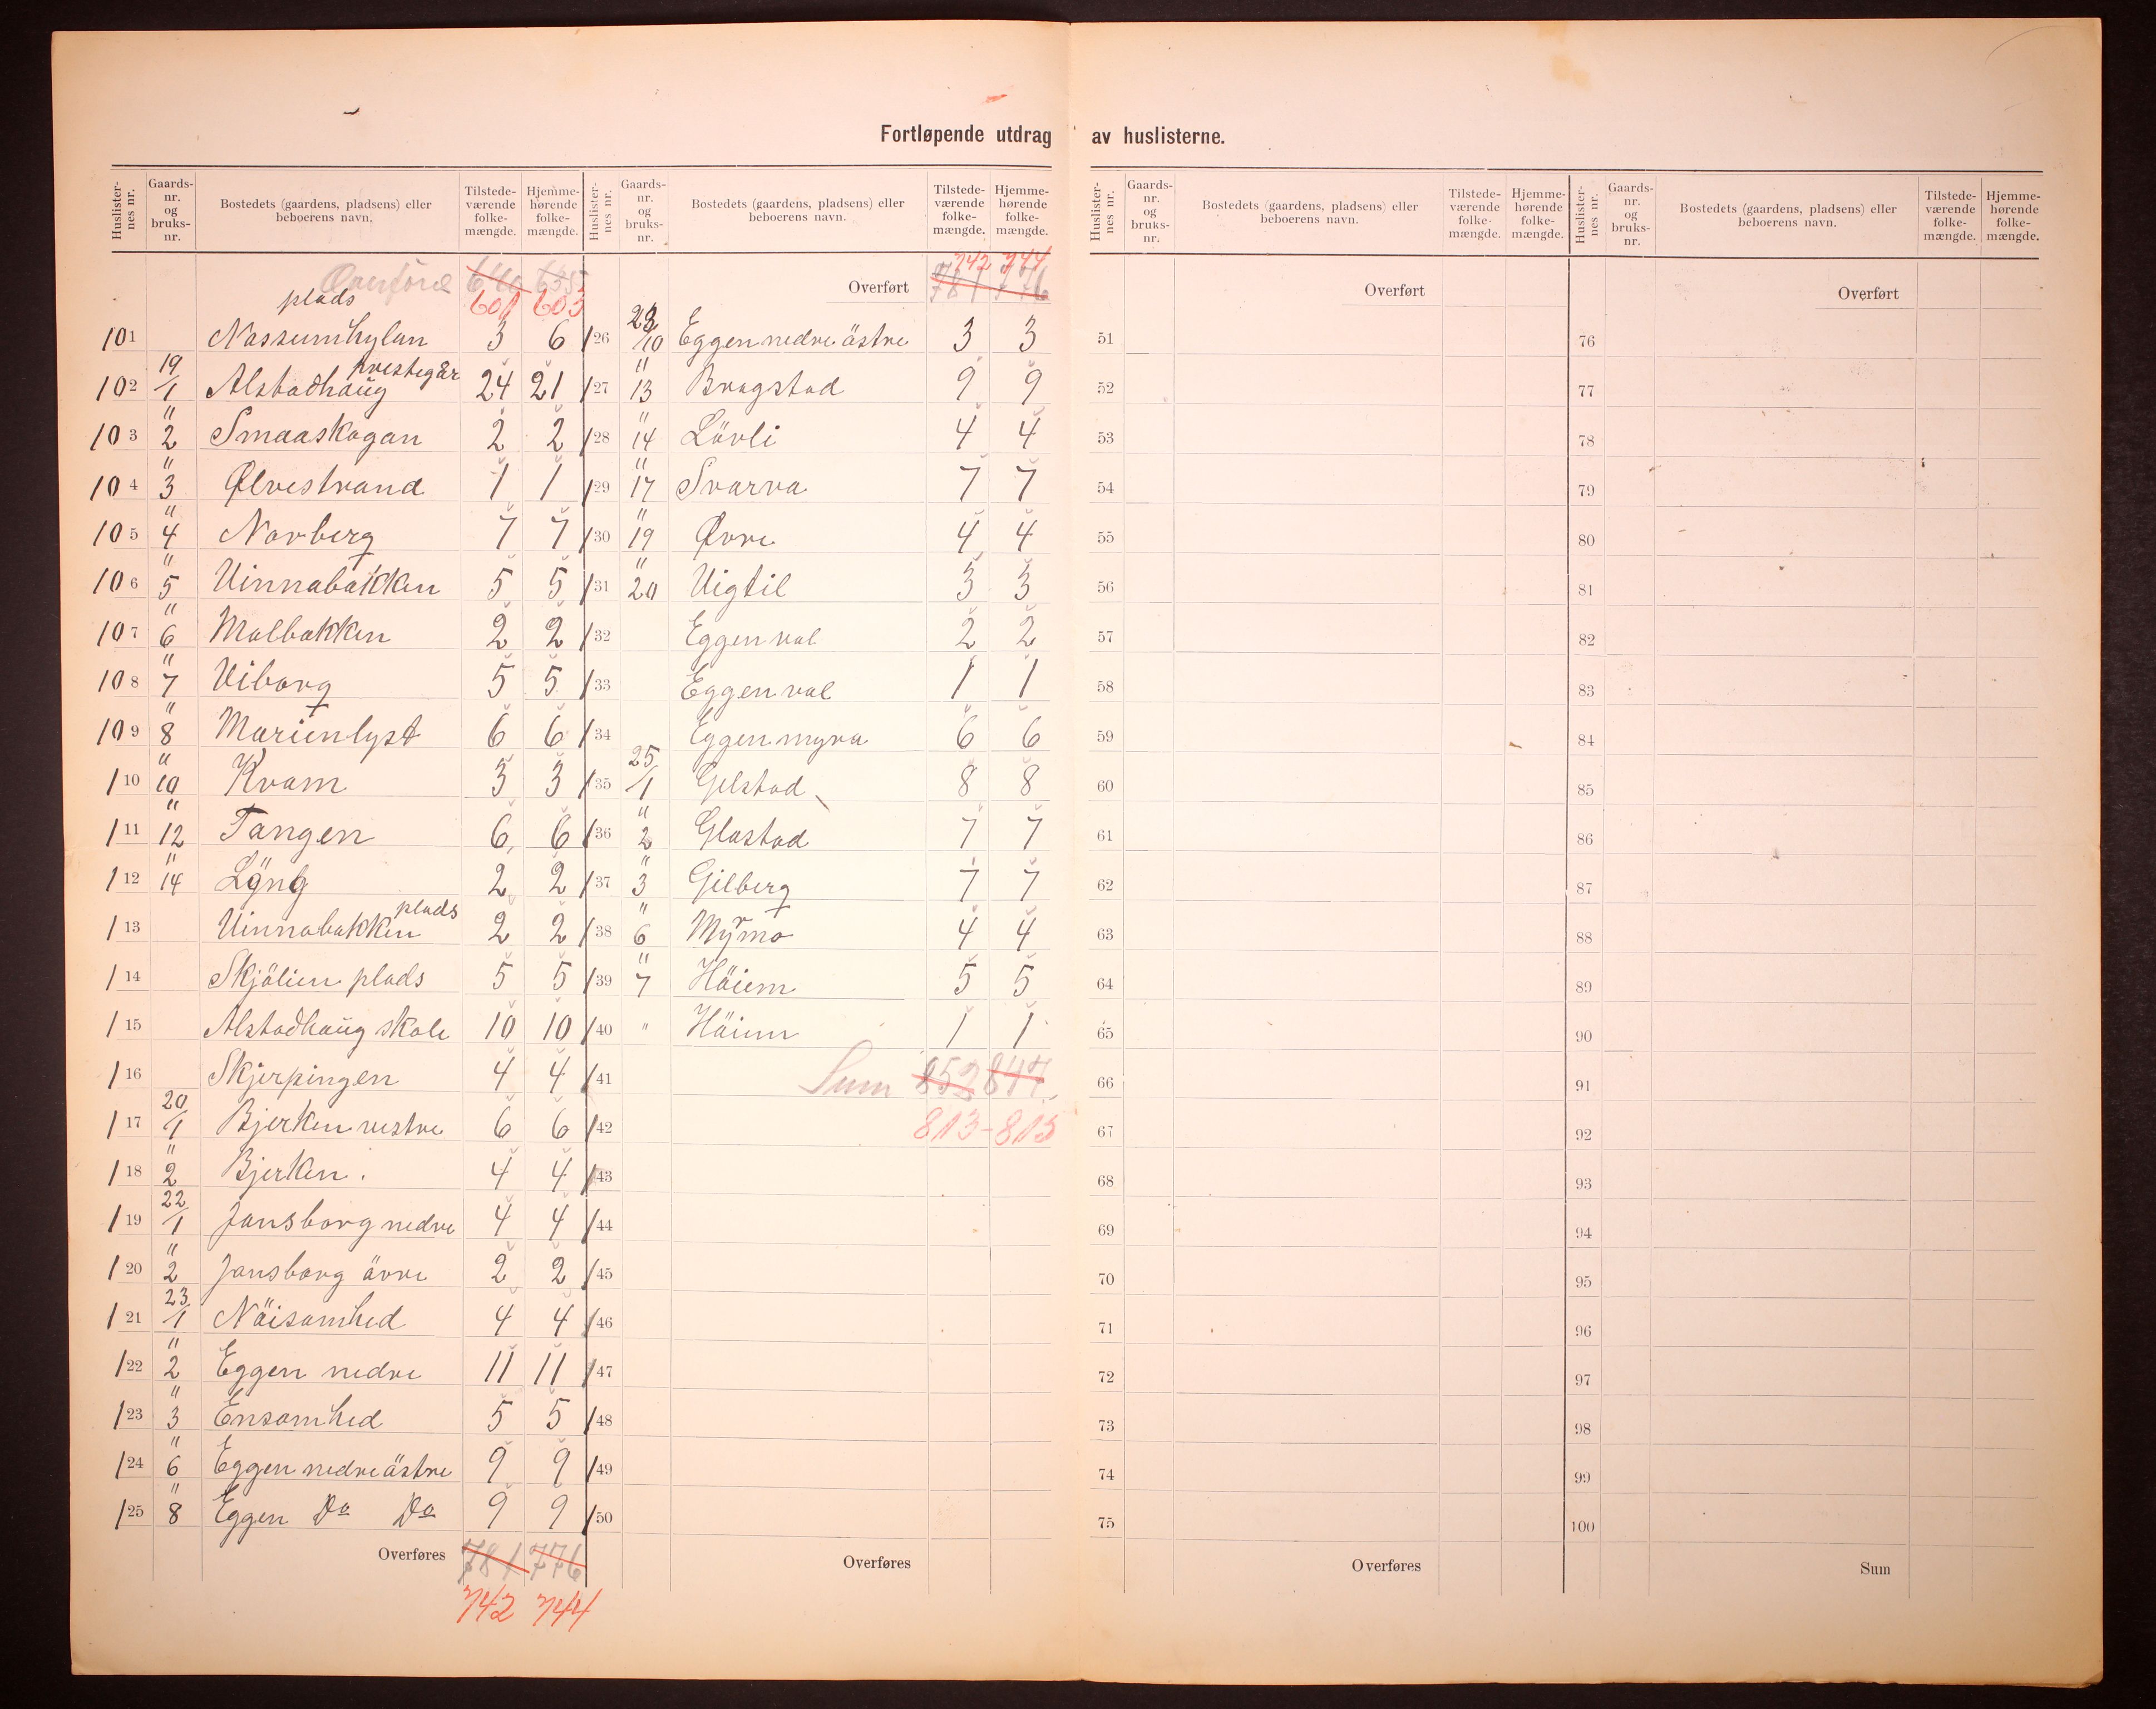 Fortløpende utdrag av huslisterne.
Huslisternes nr. Gaards-nr. og bruks-nr. Bostedets (gaardens, pladsens) eller beboerens navn. Tilstedeværende folkemængde. Hjemmehørende folkemængde.
Overført 640 635
601 603
plads
101 Nossumhylan 3 6
102 19/1 Alstadhaug prestegår 24 21
103 " 2 Smaaskogan 2 2
104 " 3 Ølvestrand 1 1
105 " 4 Norberg 7 7
106 " 5 Vinnabakken 5 5
107 " 6 Molbakken 2 2
108 " 7 Viborg 5 5
109 " 8 Marienlyst 6 6
110 " 10 Kvam 3 3
111 " 12 Tangen 6 6
112 " 14 Lÿng 2 2
113 Vinnabakken plads 2 2
114 Skjölien plads 5 5
115 Alstadhaug skole 10 10
116 Skjerpingen 4 4
117 20/1 Bjerken vestre 6 6
118 " 2 Bjerken. 4 4
119 22/1 Jonsborg nedre 4 4
120 " 2 Jonsborg övre 2 2
121 23/1 Nöisomhed 4 4
122 " 2 Eggen nedre 11 11
123 " 3 Ensomhed 5 5
124 " 6 Eggen nedre östre 9 9
125 " 8 Eggen Do Do 9 9
Overføres 781 776
742 744
Huslisternes nr. Gaards-nr. og bruks-nr. Bostedets (gaardens, pladsens) eller beboerens navn. Tilstedeværende folkemængde. Hjemmehørende folkemængde.
742 744
Overført 781 776
126 23/10 Eggen nedre östre 3 3
127 " 13 Bragstad 9 9
128 " 14 Lövli 4 4
129 " 17 Svarva 7 7
130 " 19 Øvre 4 4
131 " 20 Vigtil 3 3
132 Eggen val 2 2
133 Eggen val 1 1
134 Eggen myra 6 6
135 25/1 Gjelstad 8 8
136 " 2 Glastad 7 7
137 " 3 Gilberg 7 7
138 " 6 Myrmo 4 4
139 " 7 Höiem 5 5
140 " Höiem 1 1
141 Sum 852 847
142 813-815
143
144
145
146
147
148
149
150
Overføres
Huslisternes nr. Gaards-nr. og bruks-nr. Bostedets (gaardens, pladsens) eller beboerens navn. Tilstedeværende folkemængde. Hjemmehørende folkemængde.
Overført
51
52
53
54
55
56
57
58
59
60
61
62
63
64
65
66
67
68
69
70
71
72
73
74
75
Overføres
Huslisternes nr. Gaards-nr. og bruks-nr. Bostedets (gaardens, pladsens) eller beboerens navn. Tilstedeværende folkemængde. Hjemmehørende folkemængde.
Overført
76
77
78
79
80
81
82
83
84
85
86
87
88
89
90
91
92
93
94
95
96
97
98
99
100
Sum